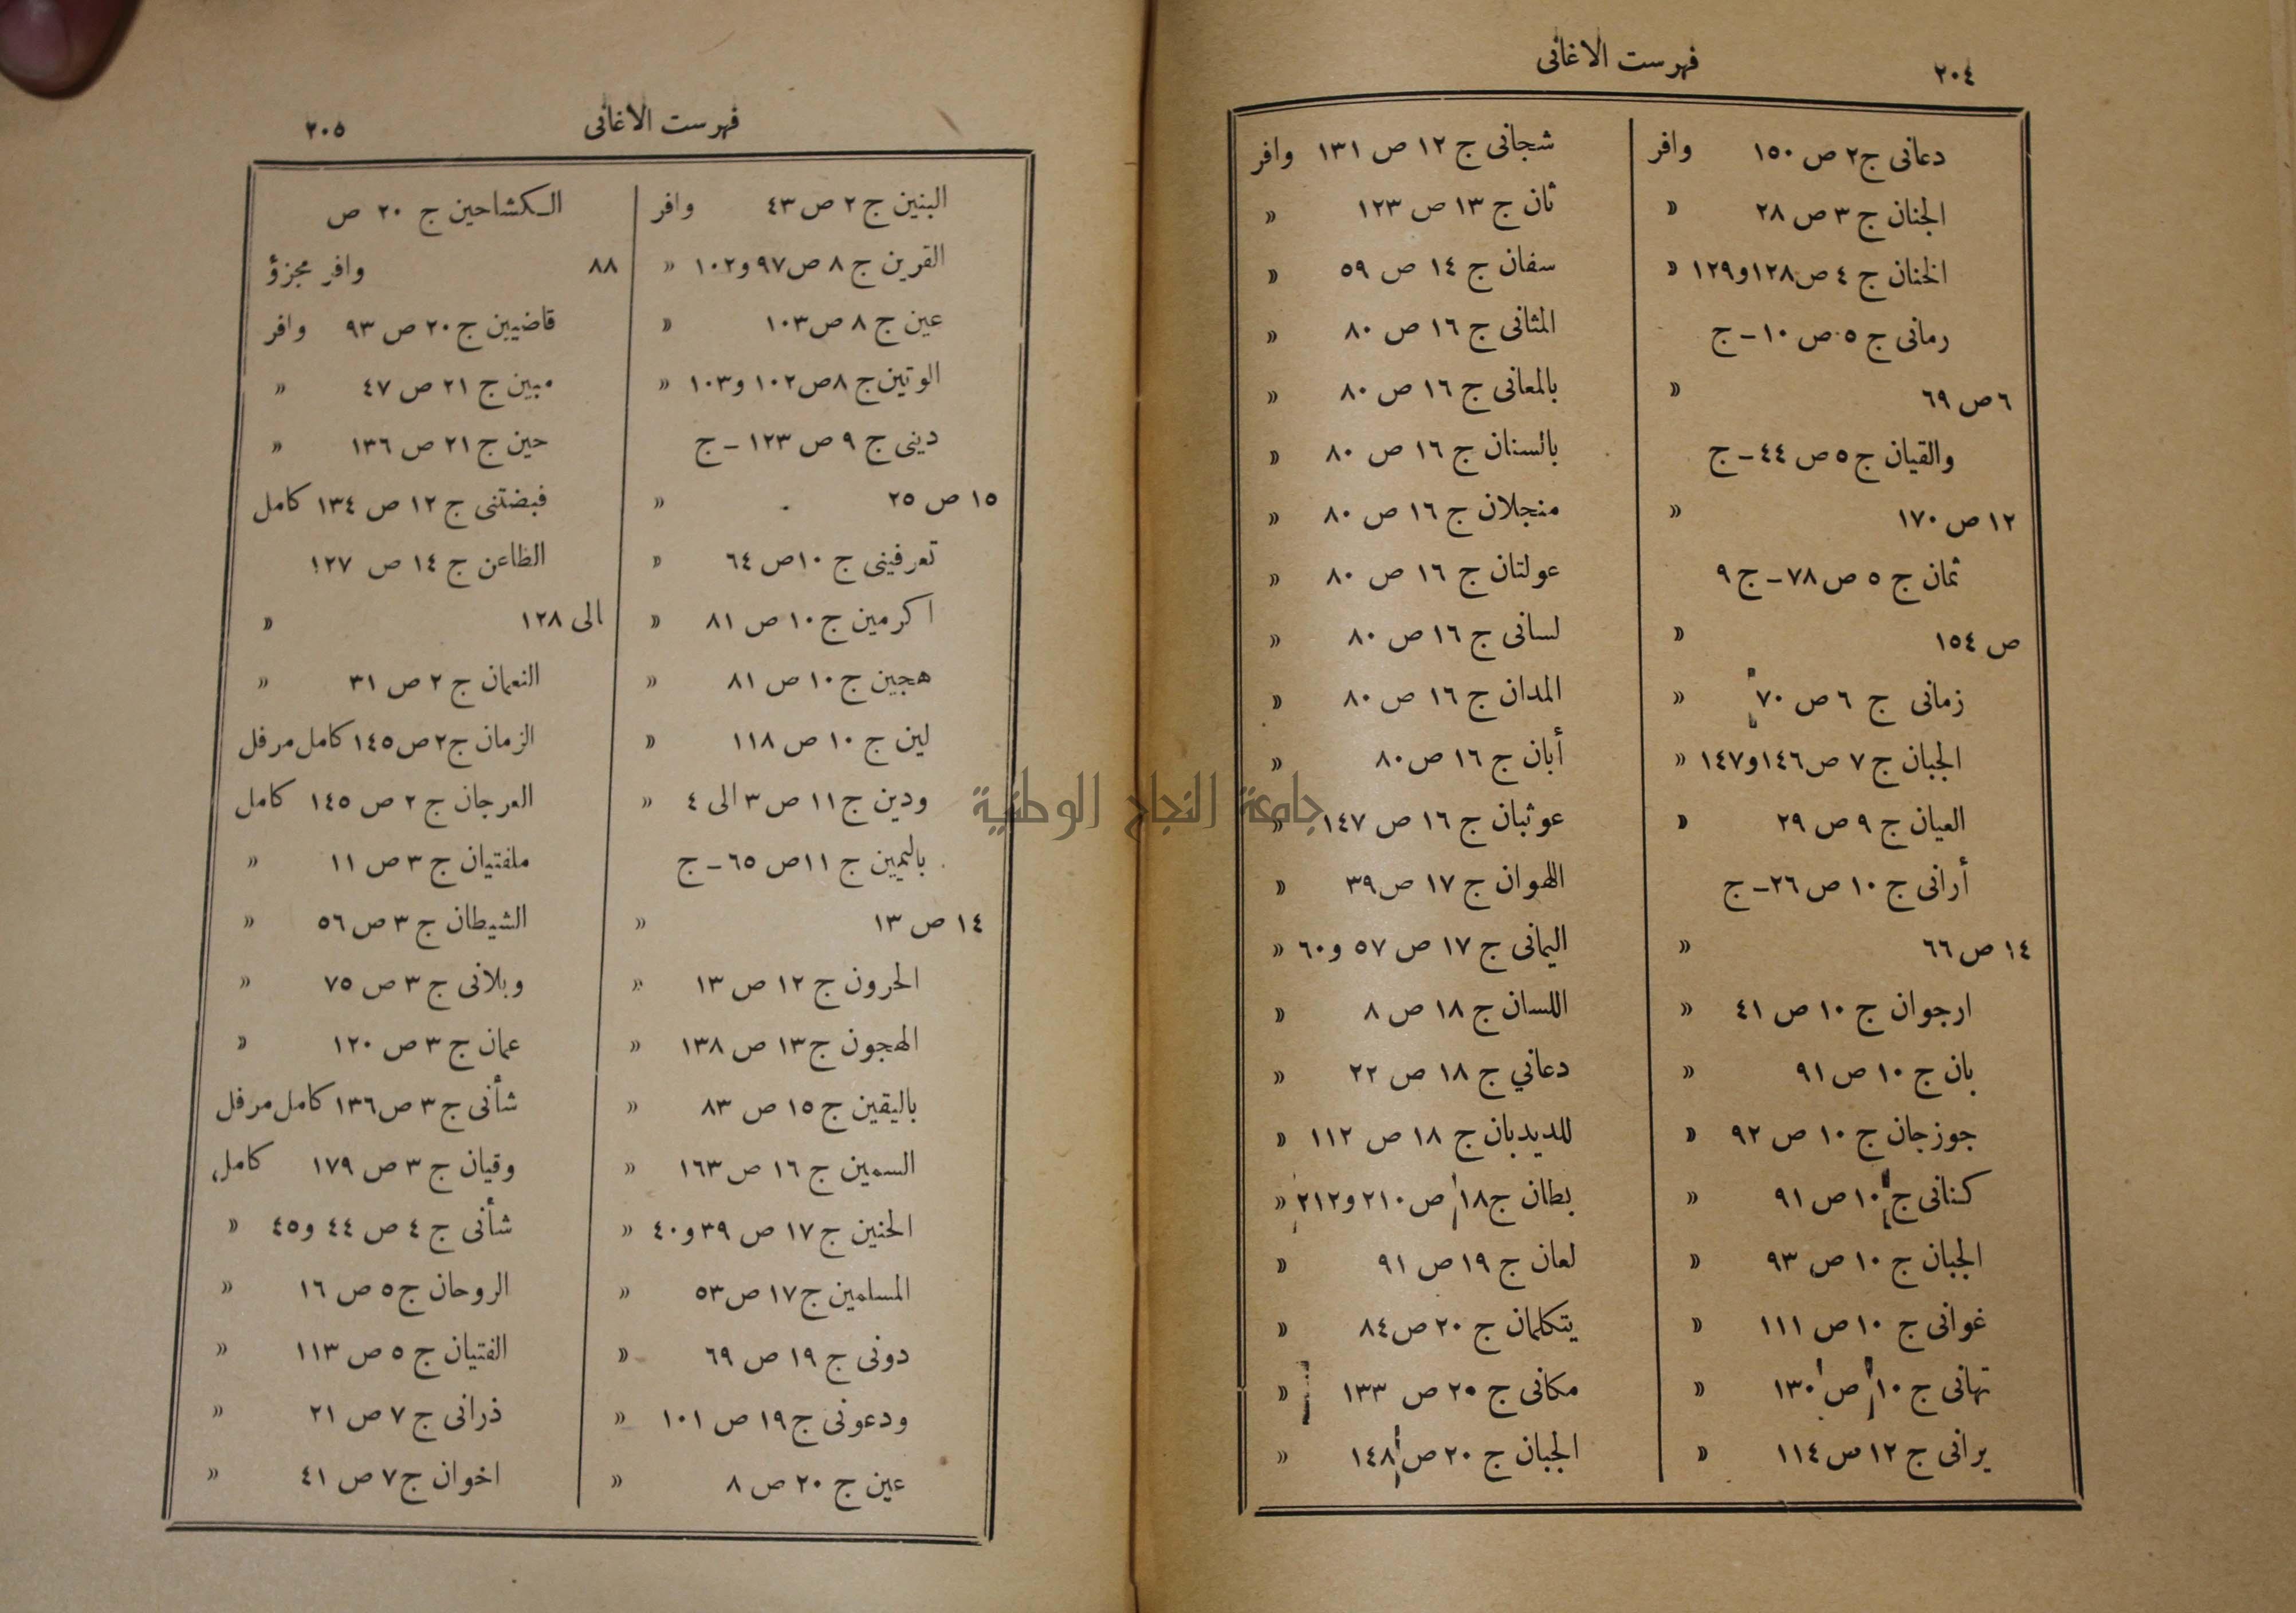 ٢٠٤
فهرست الاغانى
دعانى ج٢ ص ١٥٠ وافر
الجنان ج ٣ ص ٢٨ «
الخنان ج ٤ ص١٢٨و١٢٩ «
رمانى ج ٥ ص ١٠ - ج
٦ ص ٦٩ «
والقيان ج ٥ ص ٤٤ - ج
١٢ ص ١٧٠ «
ثمان ج ٥ ص ٧٨ - ج ٩
ص ١٥٤ «
زمانى ج ٦ ص ٧٠ «
الجبان ج ٧ ص١٤٦و١٤٧ «
العيان ج ٩ ص ٢٩ «
أرانى ج ١٠ ص ٢٦ - ج
١٤ ص ٦٦ «
ارجوان ج ١٠ ص ٤١ «
بان ج ١٠ ص ٩١ «
جوزجان ج ١٠ ص ٩٢ «
كنانى ج ١٠ ص ٩١ «
الجبان ج ١٠ ص ٩٣ «
غوانى ج ١٠ ص ١١١ «
تهانى ج ١٠ ص ١٣٠ «
يرانى ج ١٢ ص ١١٤ «
شجانى ج ١٢ ص ١٣١ وافر
ثان ج ١٣ ص ١٢٣ «
سفان ج ١٤ ص ٥٩ «
المثانى ج ١٦ ص ٨٠ «
بالمعانى ج ١٦ ص ٨٠ «
بالسنان ج ١٦ ص ٨٠ «
منجلان ج ١٦ ص ٨٠ «
عولتان ج ١٦ ص ٨٠ «
لسانى ج ١٦ ص ٨٠ «
المدان ج ١٦ ص ٨٠ «
أبان ج ١٦ ص ٨٠ «
عوثبان ج ١٦ ص ١٤٧ «
الهوان ج ١٧ ص ٣٩ «
اليمانى ج ١٧ ص ٥٧ و٦٠ «
اللسان ج ١٨ ص ٨ «
دعاني ج ١٨ ص ٢٢ «
للديدبان ج ١٨ ص ١١٢ «
بطان ج١٨ ص٢١٠ و٢١٢ «
لعان ج ١٩ ص ٩١ «
يتكلمان ج ٢٠ ص ٨٤ «
مكانى ج ٢٠ ص ١٣٣ «
الجبان ج ٢٠ ص ١٤٨ «
جامعة النجاح الوطنية
فهرست الاغانى
٢٠٥
البنين ج ٢ ص ٤٣ وافر
القرين ج ٨ ص٩٧ و١٠٢ «
عين ج ٨ ص ١٠٣ «
الوتين ج ٨ص ١٠٢ و١٠٣ «
دينى ج ٩ ص ١٢٣ - ج
١٥ ص ٢٥ «
تعرفينى ج ١٠ص ٦٤ «
اكرمين ج ١٠ ص ٨١ «
هجين ج ١٠ ص ٨١ «
لين ج ١٠ ص ١١٨ «
ودين ج ١١ ص ٣ الى ٤ «
باليمين ج ١١ص ٦٥ - ج
١٤ ص ١٣ «
الحرون ج ١٢ ص ١٣ «
الهجون ج ١٣ ص ١٣٨ «
باليقين ج ١٥ ص ٨٣ «
السمين ج ١٦ ص ١٦٣ «
الحنين ج ١٧ ص ٣٩ و٤٠ «
المسلمين ج ١٧ ص ٥٣ «
دونى ج ١٩ ص ٦٩ «
ودعونى ج ١٩ ص ١٠١ «
عين ج ٢٠ ص ٨ «
الكشاحين ج ٢٠ ص
٨٨ وافر مجزؤ
قاضيين ج ٢٠ ص ٩٣ وافر
مبين ج ٢١ ص ٤٧ «
حين ج ٢١ ص ١٣٦ «
فبضتنى ج ١٢ ص ١٣٤ كامل
الظاعن ج ١٤ ص ١٢٧
الى ١٢٨ «
النعمان ج ٢ ص ٣١ «
الزمان ج ٢ ص ١٤٥ كامل مرفل
العرجان ج ٢ ص ١٤٥ كامل
ملفتيان ج ٣ ص ١١ «
الشيطان ج ٣ ص ٥٦ «
وبلانى ج ٣ ص ٧٥ «
عمان ج ٣ ص ١٢٠ «
شأنى ج ٣ ص ١٣٦ كامل مرفل
وقيان ج ٣ ص ١٧٩ كامل
شأنى ج ٤ ص ٤٤ و٤٥ «
الروحان ج ٥ ص ١٦ «
الفتيان ج ٥ ص ١١٣ «
ذرانى ج ٧ ص ٢١ «
اخوان ج ٧ ص ٤١ «